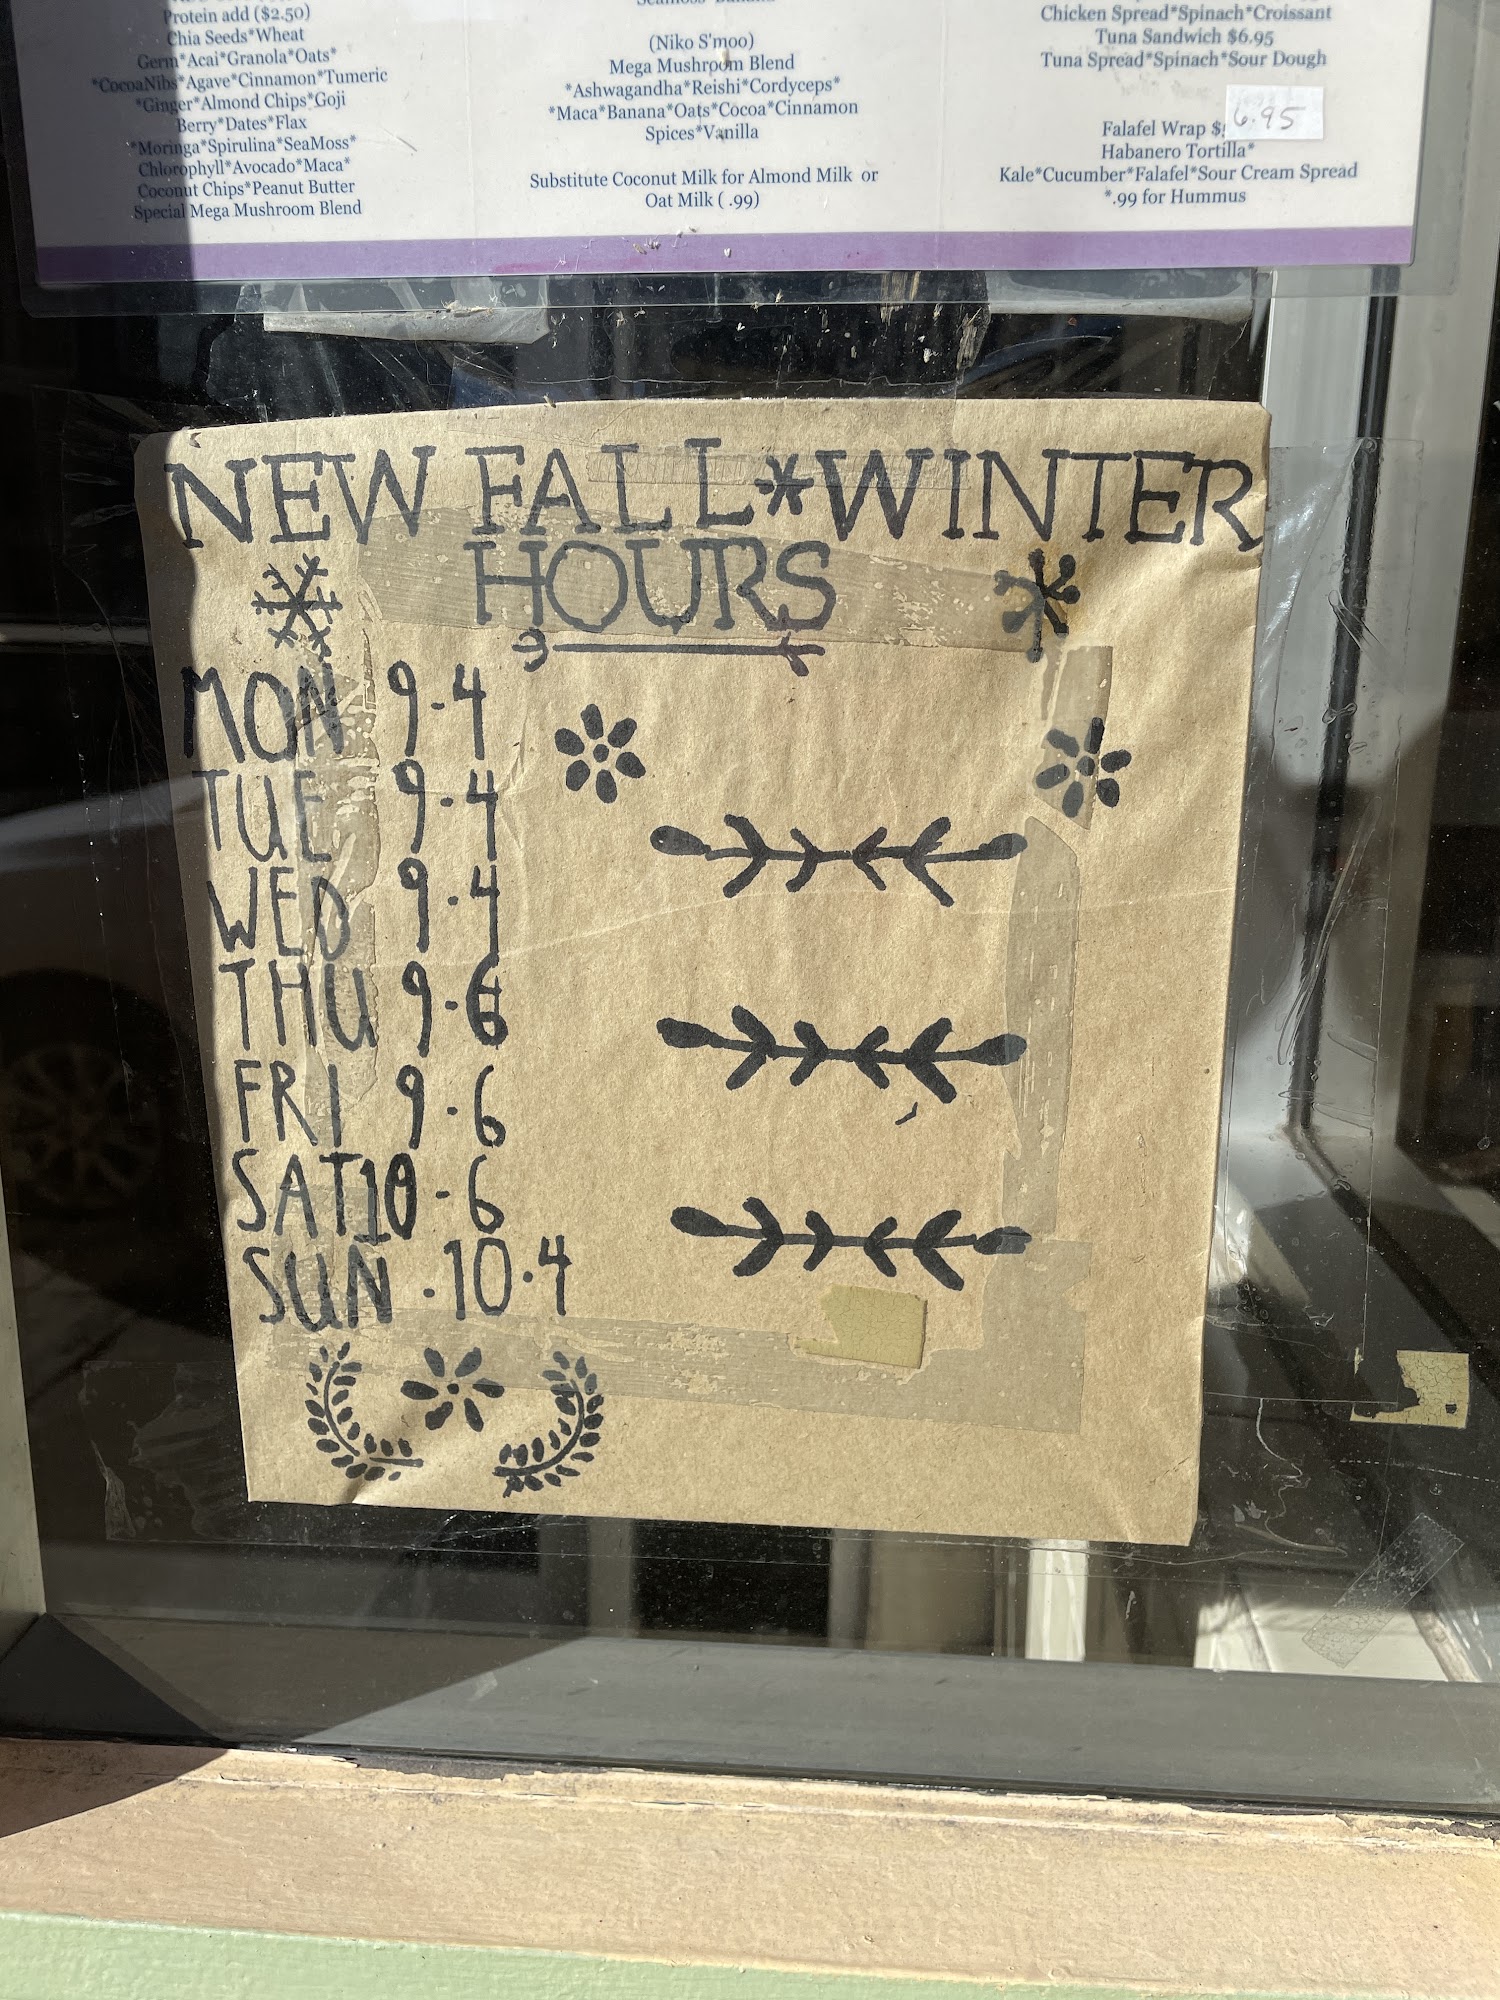 Protein add ($2.50)
Chia Seeds*Wheat
Germ*Acai*Granola*Oats*
*CocoaNibs*Agave*Cinnamon*Tumeric
*Ginger*Almond Chips*Goji
Berry*Dates*Flax
*Moringa*Spirulina*SeaMoss*
Chlorophyll*Avocado*Maca*
Coconut Chips*Peanut Butter
Special Mega Mushroom Blend
(Niko S'moo)
Mega Mushroom Blend
*Ashwagandha*Reishi*Cordyceps*
*Maca*Banana*Oats*Cocoa*Cinnamon
Spices*Vanilla
Substitute Coconut Milk for Almond Milk or
Oat Milk ( .99)
Chicken Spread*Spinach*Croissant
Tuna Sandwich $6.95
Tuna Spread*Spinach*Sour Dough
Falafel Wrap $ 6.95
Habanero Tortilla*
Kale*Cucumber*Falafel*Sour Cream Spread
*.99 for Hummus
NEW FALL*WINTER
HOURS
MON 9-4
TUE 9-4
WED 9-4
THU 9-6
FRI 9-6
SAT 10-6
SUN 10-4